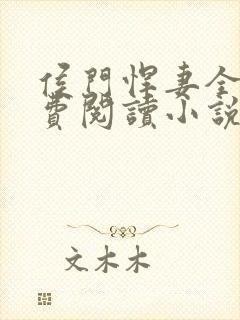 侯門悍妻全
費閱讀小說
文木木